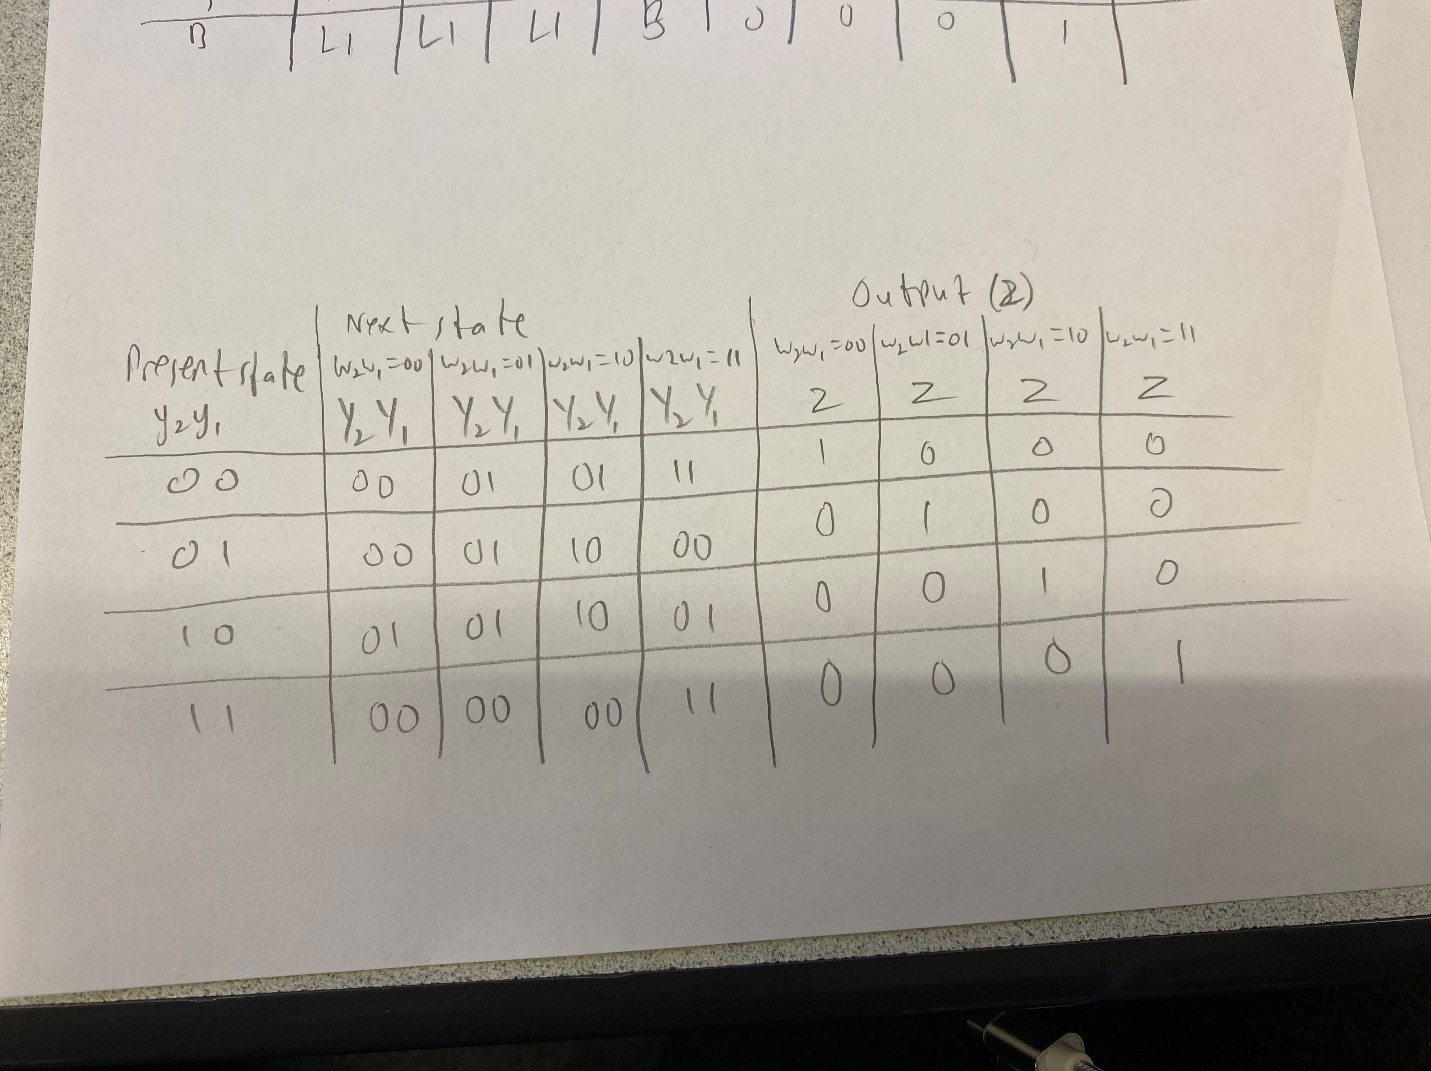 B L1 L1 L1 B 0 0 0 1
Next state Output (Z)
Present state w₂w₁=00 w₂w₁=01 w₂w₁=10 w2w₁=11 w₂w₁=00 w₂w1=01 w₂w₁=10 w₂w₁=11
y₂y₁ Y₂Y₁ Y₂Y₁ Y₂Y₁ Y₂Y₁ Z Z Z Z
00 00 01 01 11 1 0 0 0
01 00 01 10 00 0 1 0 0
10 01 01 10 01 0 0 1 0
11 00 00 00 11 0 0 0 1